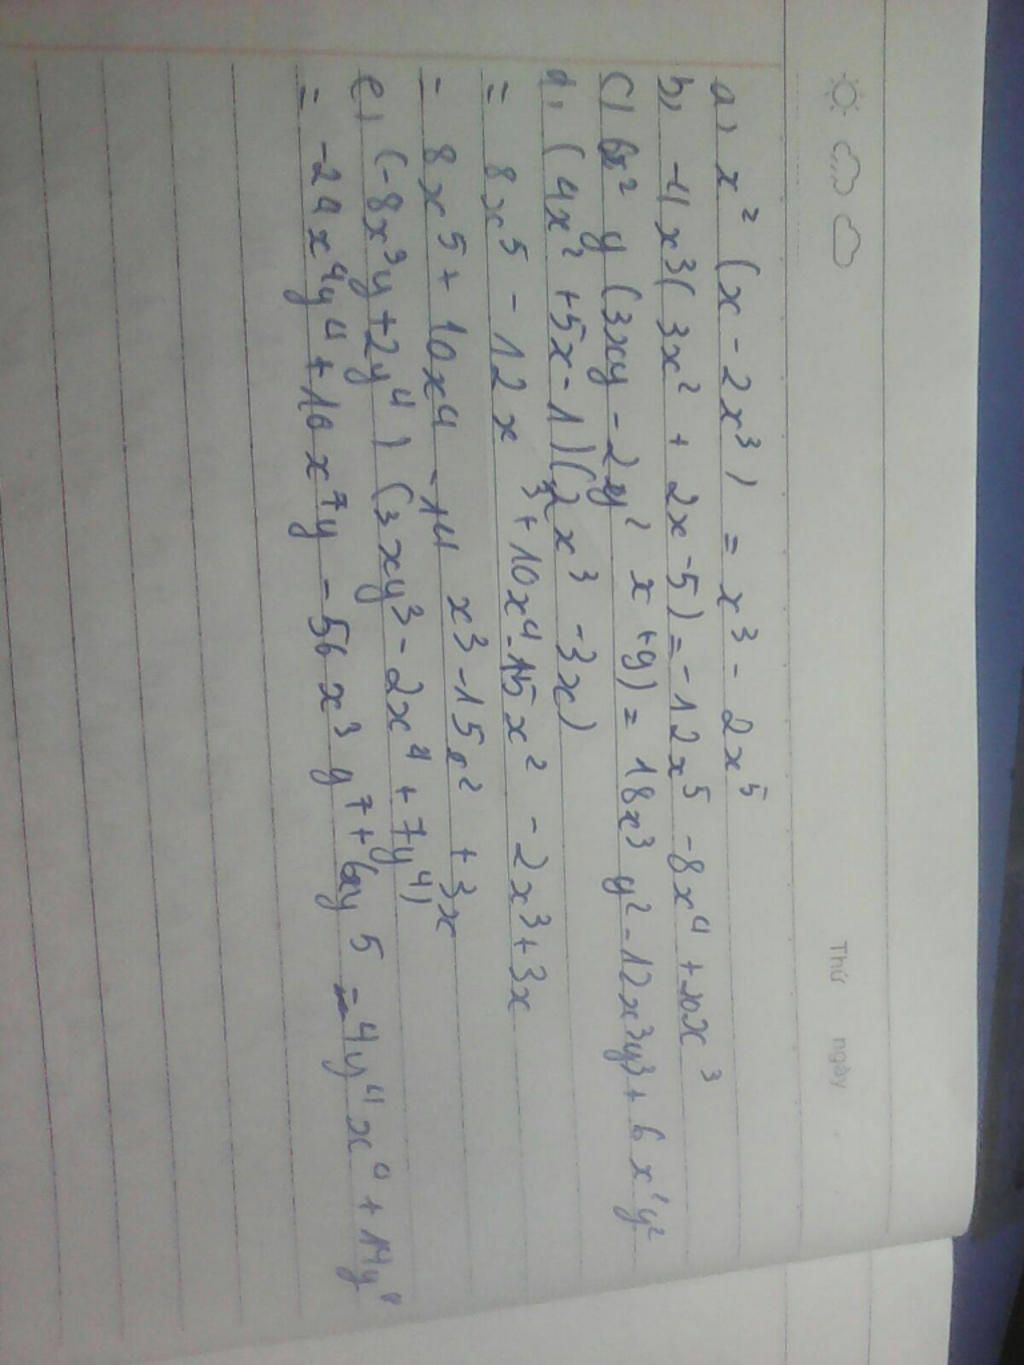 Thứ ngày
a, x² (x - 2x³) = x³ - 2x⁵
b, -4x³(3x² + 2x -5) = -12x⁵ -8x⁴ +20x³
c) 6x² y (3xy - 2y² x +y) = 18x³ y² -12x³y³ + 6x²y²
d, (4x² +5x -1)(2x³ -3x)
= 8x⁵ - 12x³ +10x⁴ -15x² -2x³ +3x
= 8x⁵ + 10x⁴ -14x³ -15x² +3x
e, (-8x³y +2y⁴) (3xy³ -2x⁴ +7y⁴)
= -24x⁴y⁴ +16x⁷y -56x³y⁷ +6xy 5 -4y⁴x⁴ +14y⁸